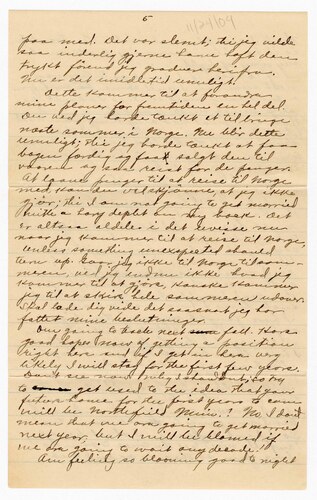 5
11/24/09
paa med. Det var slemt; thi jeg vilde
saa inderlig gjerne have haft den
trykt førend jeg graduer herifra.
Nu er det imidlertid umuligt.
Dette kommer til at forandre
mine planer for fremtiden en hel del.
Du ved jeg havde tænkt at tilbringe
næste sommer i Norge. Nu blir dette
umuligt; thi jeg havde tænkt at faa
bogen færdig og faa solgt den til
vaaren og saa reist for de penger.
At laane penger til at reise til Norge
med, kan du vel skjønne, at jeg ikke
gjør; thi I am not going to get married
with a big debt on my back. Det
er altsaa aldeles i det uvisse nu
naar jeg kommer til at reise til Norge,
unless something unexpected should
turn up. Gaar jeg ikke til Norge til som-
meren, ved jeg endnu ikke hvad jeg
kommer til at gjøre. Kanske kommer
jeg til at skrive hele sommeren udover.
Skal lade dig vide det saasnart jeg har
fattet mine beslutninger.
Am going to teach next fall. Have
good hopes now of getting a position
right here and if I get in here very
likely I will stay for the first few years.
Don't see now why I shouldn't, so try
to get used to the idea that your
future home for the first years to come
will be Northfield Minn.! No I don't
mean that we are going to get married
next year but I will be blamed if
we are going to wait any decade!
Am feeling so blooming good to night